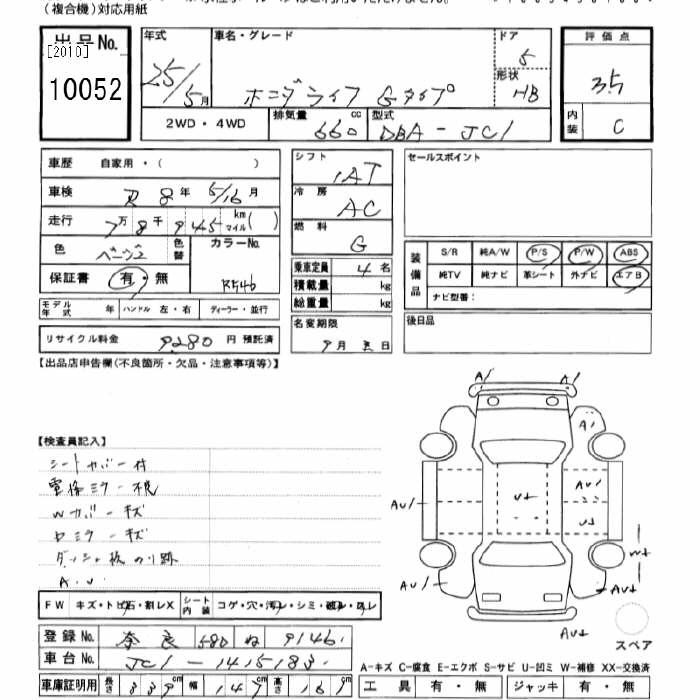 (複合機)対応用紙
出品No.
[2010]
10052
年式 25/5月
車名・グレード ホンダライフ Gタイプ
ドア 5
形状 HB
評価点 3.5
内装 C
2WD・4WD
排気量 660 cc
型式 DBA-JC1
車歴 自家用・( )
車検 R8年 5/16月
走行 7万8千945 km マイル( )
色 ベージュ 色替
カラーNo. R546
保証書 有・無
モデル年式 年 ハンドル 左・右 ディーラー・並行
リサイクル料金 9280 円 預託済
シフト IAT
冷房 AC
燃料 G
乗車定員 4名
積載量 kg
総重量 kg
名変期限 9月 日
セールスポイント
装備品
S/R 純A/W P/S P/W ABS
純TV 純ナビ 革シート 外ナビ エアB
ナビ型番:
後日品
【出品店申告欄(不良箇所・欠品・注意事項等)】
【検査員記入】
シートカバー付
電格ミラー不良
Wカバーキズ
Dミラーキズ
ダッシュ板のり跡
A.U
FW キズ・トビ石・割レX シート内装 コゲ・穴・汚レ・シミ・破レ・スレ
登録No. 奈良 580 ね 9146
車台No. JC1-1415183
車庫証明用 長さ 339cm 幅 147cm 高さ 161cm
A/ A/
A/
AU/
AU/
U+
U+
W+
AU/
AU+
AU+
スペア
A-キズ C-腐食 E-エクボ S-サビ U-凹ミ W-補修 XX-交換済
工具 有・無 ジャッキ 有・無